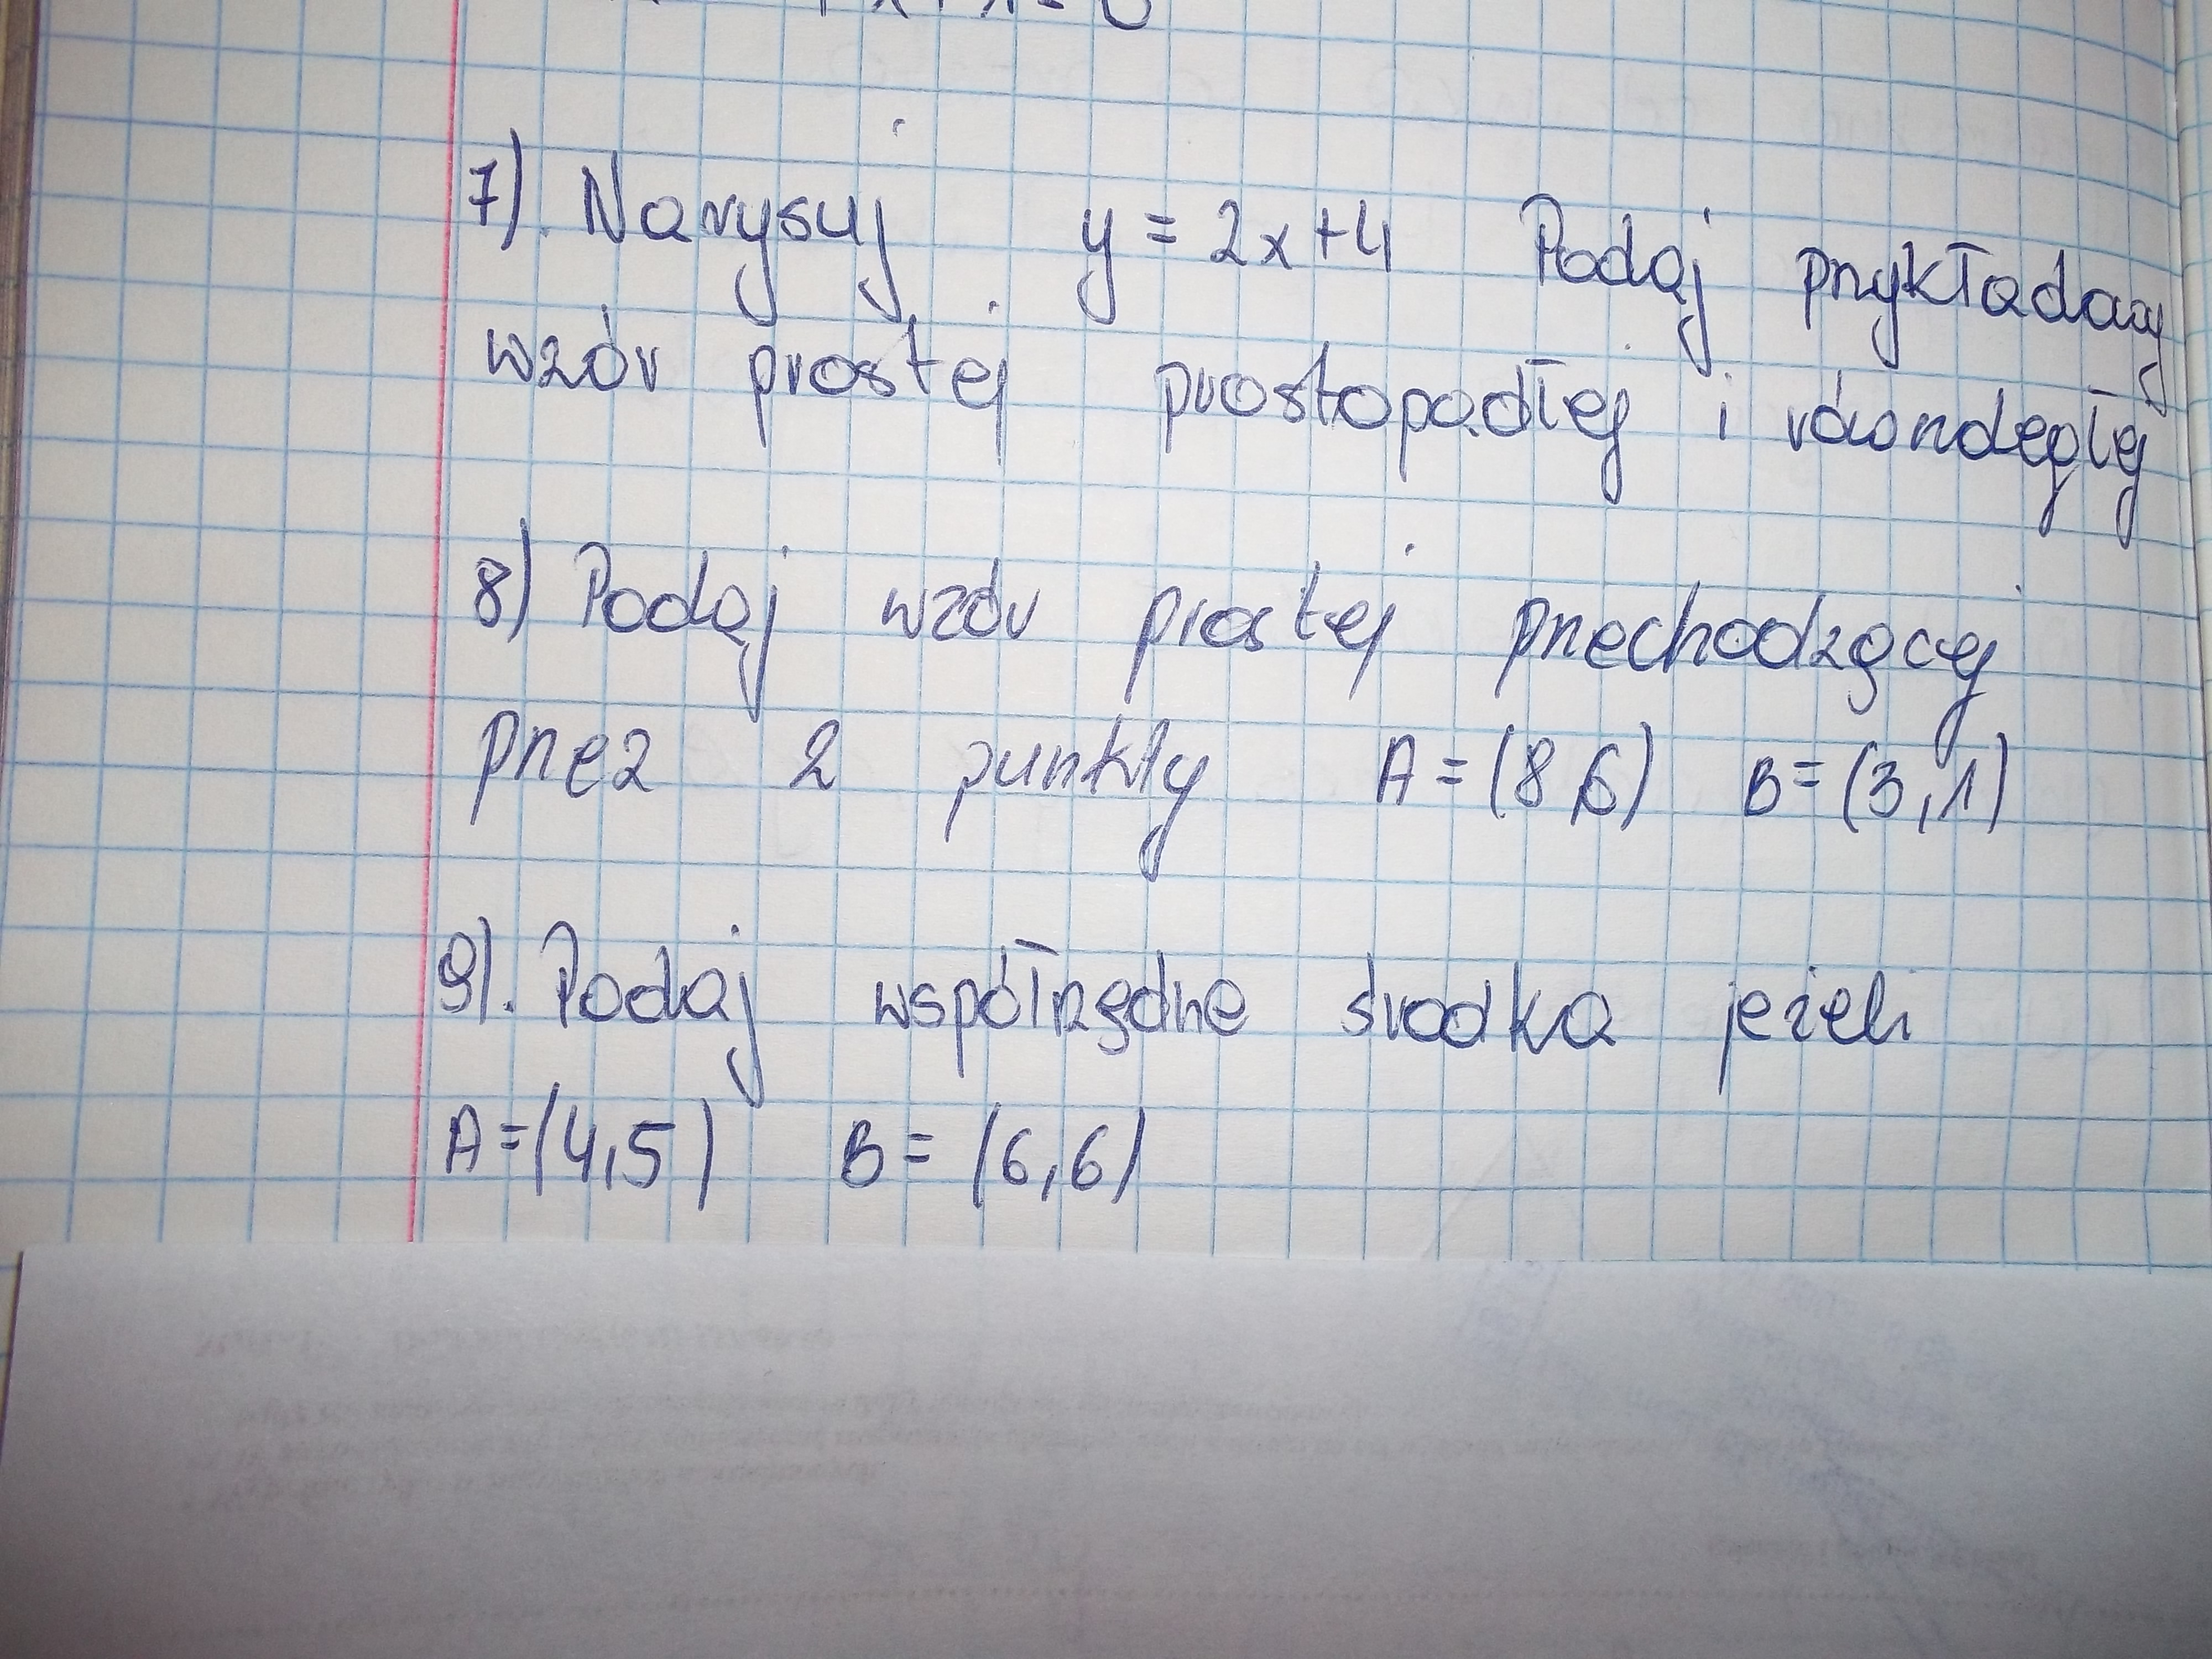 7). Narysuj y = 2x+4 Podaj przykładowy
wzór prostej prostopadłej i równoległej
8) Podaj wzór prostej przechodzącej
przez 2 punkty A = (8,6) B = (3,1)
9). Podaj współrzędne środka jeżeli
A = (4,5) B = (6,6)